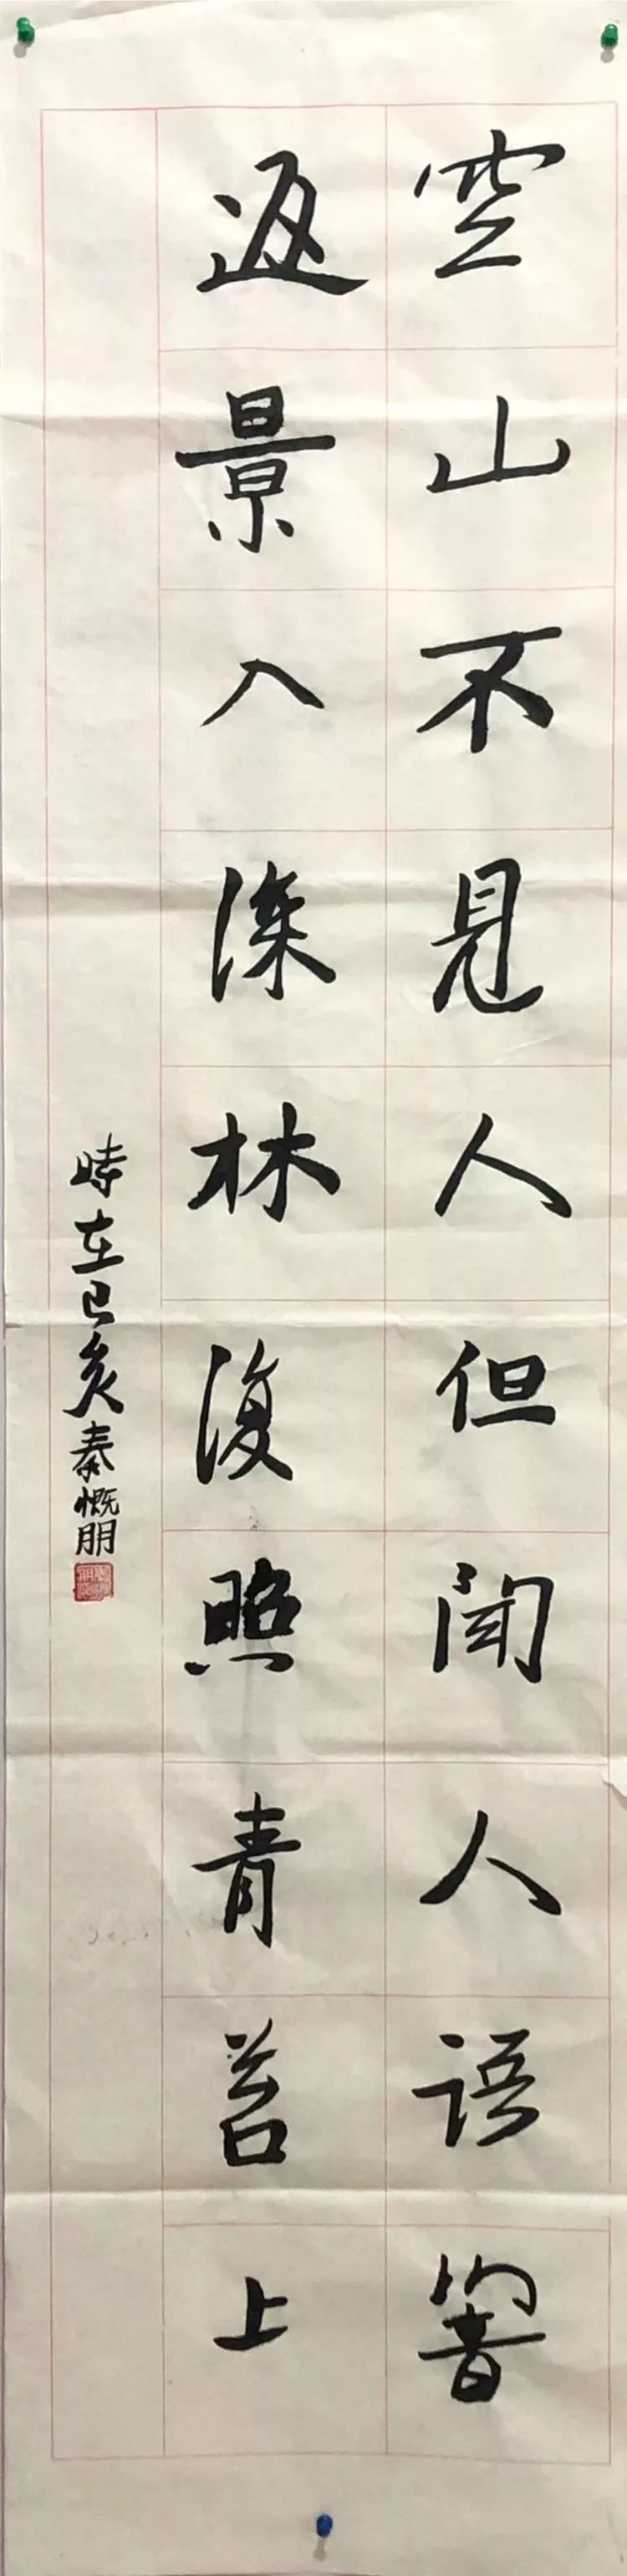 空山不見人但聞人語響
返景入深林復照青苔上
時在己亥秦慨朋